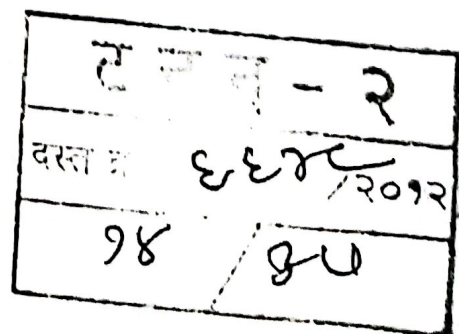 ट न न - २
दस्त क्र ६६४८/२०१२
१४ /